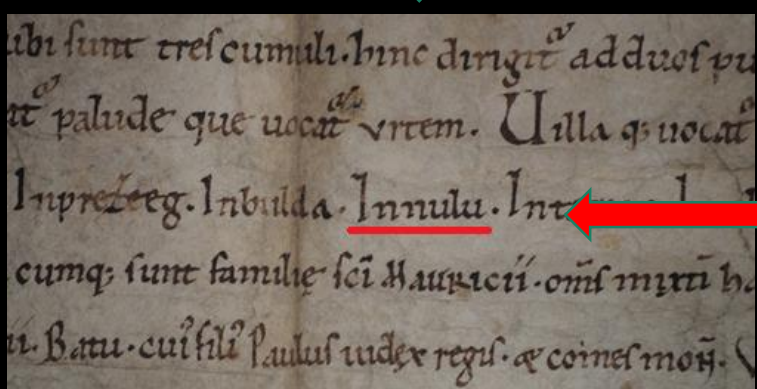 ubi sunt tres cumuli. hinc dirigit᷑ ad duos pu
at᷑ palude que uocat᷑ urtem. Uilla q; uocat᷑
Inprezeeg. Inbulda. Innulu.
cumq; sunt familię sc̄i Mauricii. om̄s mixti
Batu. cui᷒ fili᷒ Paulus iudex regis. &